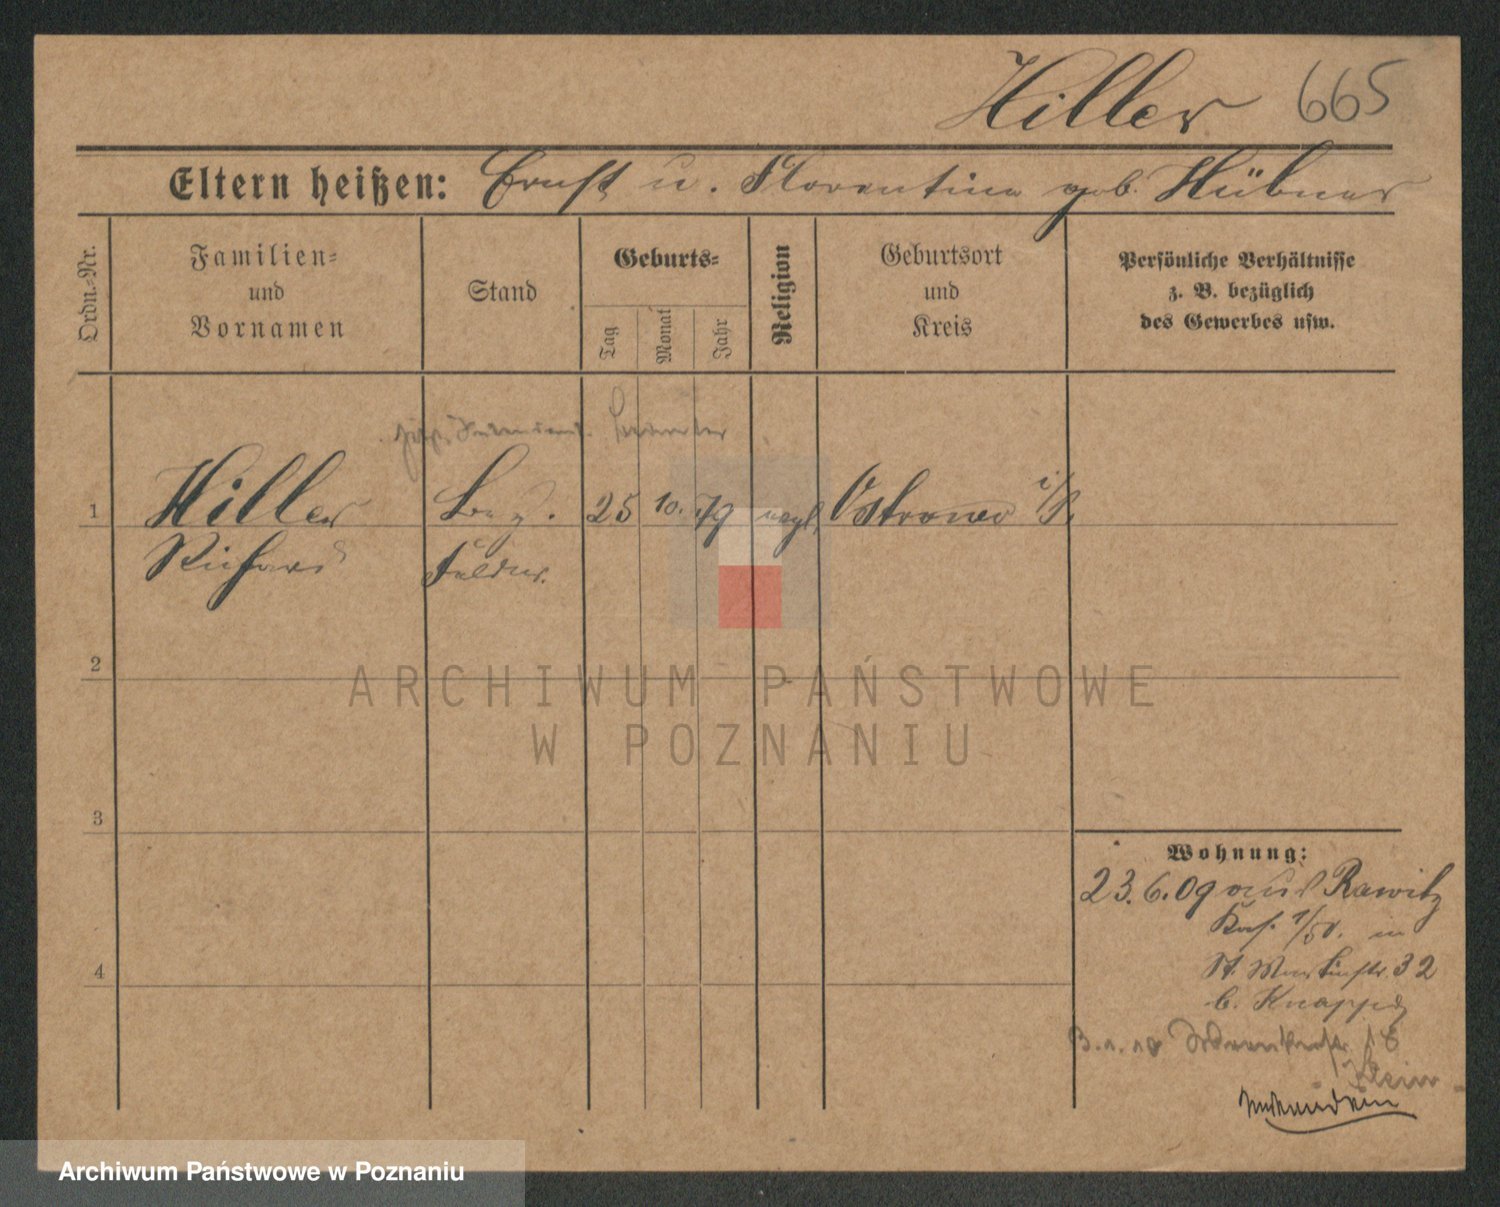 Hiller 665
Eltern heißen: Ernst u. Florentine geb. Hübner
Ordn.-Nr.
Familien-
und
Vornamen
Stand
Geburts-
Tag
Monat
Jahr
Religion
Geburtsort
und
Kreis
Persönliche Verhältnisse
z. B. bezüglich
des Gewerbes usw.
1 Hiller 25 10. 79 evgl. Ostrowo i/P.
Richard Feldw.
2
3
4
Wohnung:
23.6.09 aus Rawitz
1/50. in
St. Martinstr. 32
b. Knappe
18
ARCHIWUM PAŃSTWOWE
W POZNANIU
Archiwum Państwowe w Poznaniu